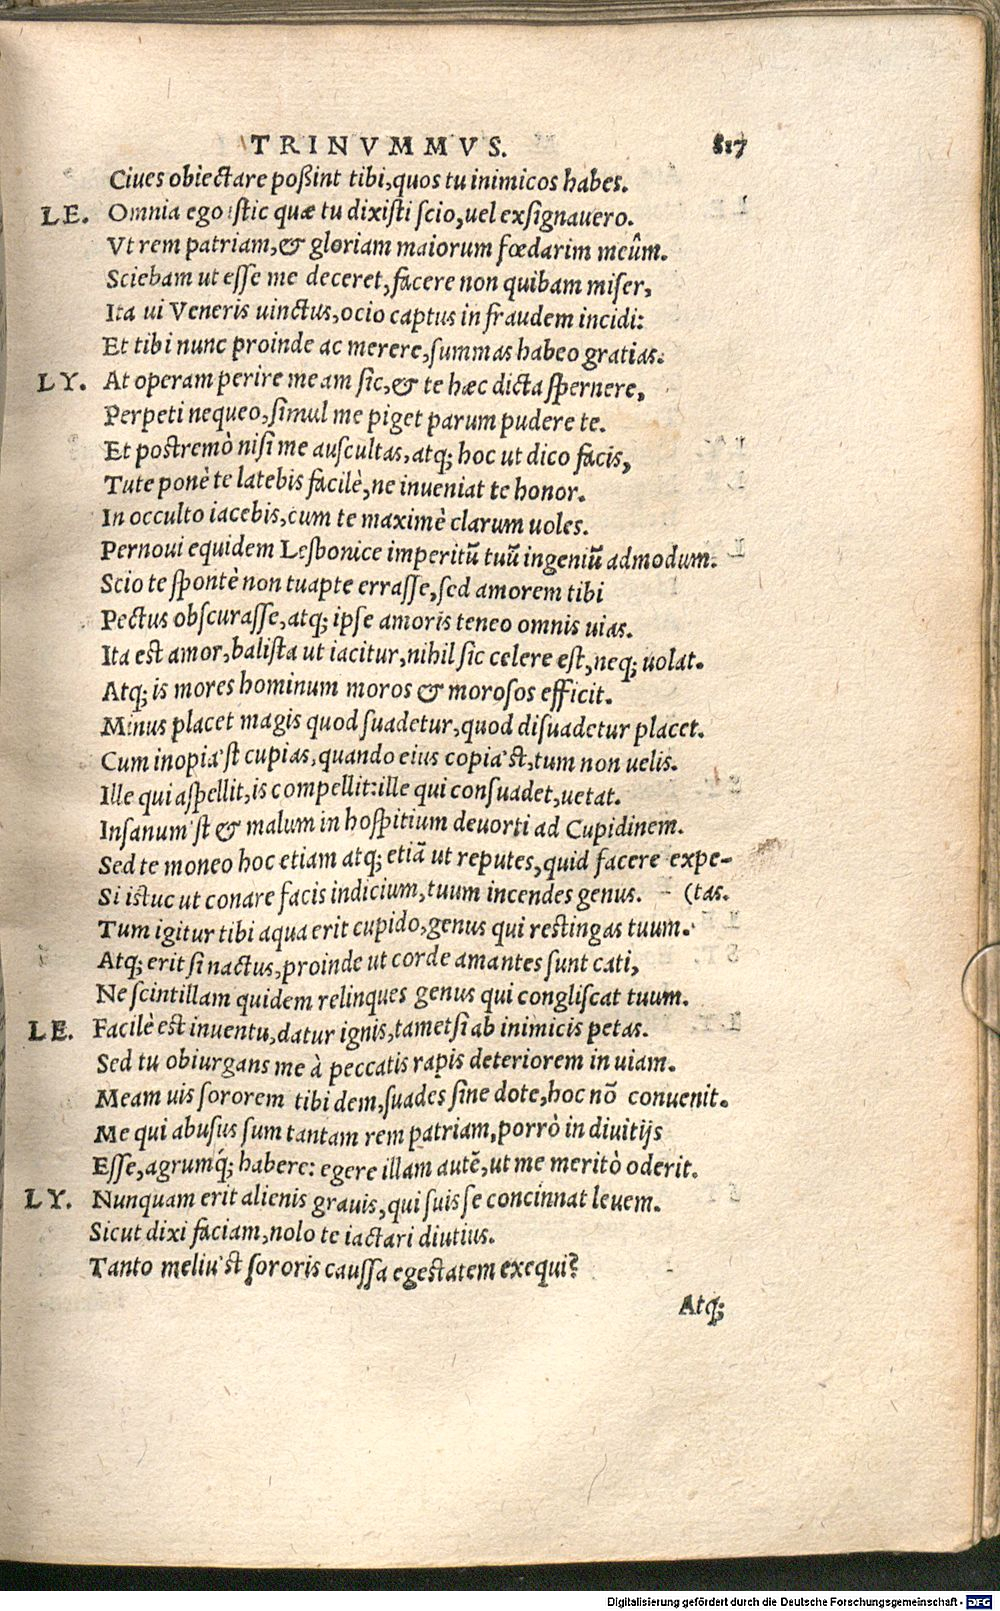 TRINVMMVS. 817
Ciues obiectare poßint tibi, quos tu inimicos habes.
LE. Omnia ego istic quæ tu dixisti scio, uel exsignauero.
Vt rem patriam, & gloriam maiorum fœdarim meûm.
Sciebam ut esse me deceret, facere non quibam miser,
Ita ui Veneris uinctus, ocio captus in fraudem incidi:
Et tibi nunc proinde ac merere, summas habeo gratias.
LY. At operam perire meam sic, & te hæc dicta spernere,
Perpeti nequeo, simul me piget parum pudere te.
Et postremò nisi me auscultas, atq; hoc ut dico facis,
Tute ponè te latebis facilè, ne inueniat te honor.
In occulto iacebis, cum te maximè clarum uoles.
Pernoui equidem Lesbonice imperitū tuū ingeniū admodum.
Scio te spontè non tuapte errasse, sed amorem tibi
Pectus obscurasse, atq; ipse amoris teneo omnis uias.
Ita est amor, balista ut iacitur, nihil sic celere est, neq; uolat.
Atq; is mores hominum moros & morosos efficit.
Minus placet magis quod suadetur, quod disuadetur placet.
Cum inopia'st cupias, quando eius copia'st, tum non uelis.
Ille qui aspellit, is compellit: ille qui consuadet, uetat.
Insanum'st & malum in hospitium deuorti ad Cupidinem.
Sed te moneo hoc etiam atq; etiā ut reputes, quid facere expe-
Si istuc ut conare facis indicium, tuum incendes genus. (tas.
Tum igitur tibi aqua erit cupido, genus qui restingas tuum.
Atq; erit si nactus, proinde ut corde amantes sunt cati,
Ne scintillam quidem relinques genus qui congliscat tuum.
LE. Facilè est inuentu, datur ignis, tametsi ab inimicis petas.
Sed tu obiurgans me à peccatis rapis deteriorem in uiam.
Meam uis sororem tibi dem, suades sine dote, hoc nō conuenit.
Me qui abusus sum tantam rem patriam, porrò in diuitijs
Esse, agrumq́; habere: egere illam autē, ut me meritò oderit.
LY. Nunquam erit alienis grauis, qui suis se concinnat leuem.
Sicut dixi faciam, nolo te iactari diutius.
Tanto meliu'st sororis caussa egestatem exequi?
Atq;
Digitalisierung gefördert durch die Deutsche Forschungsgemeinschaft - DFG